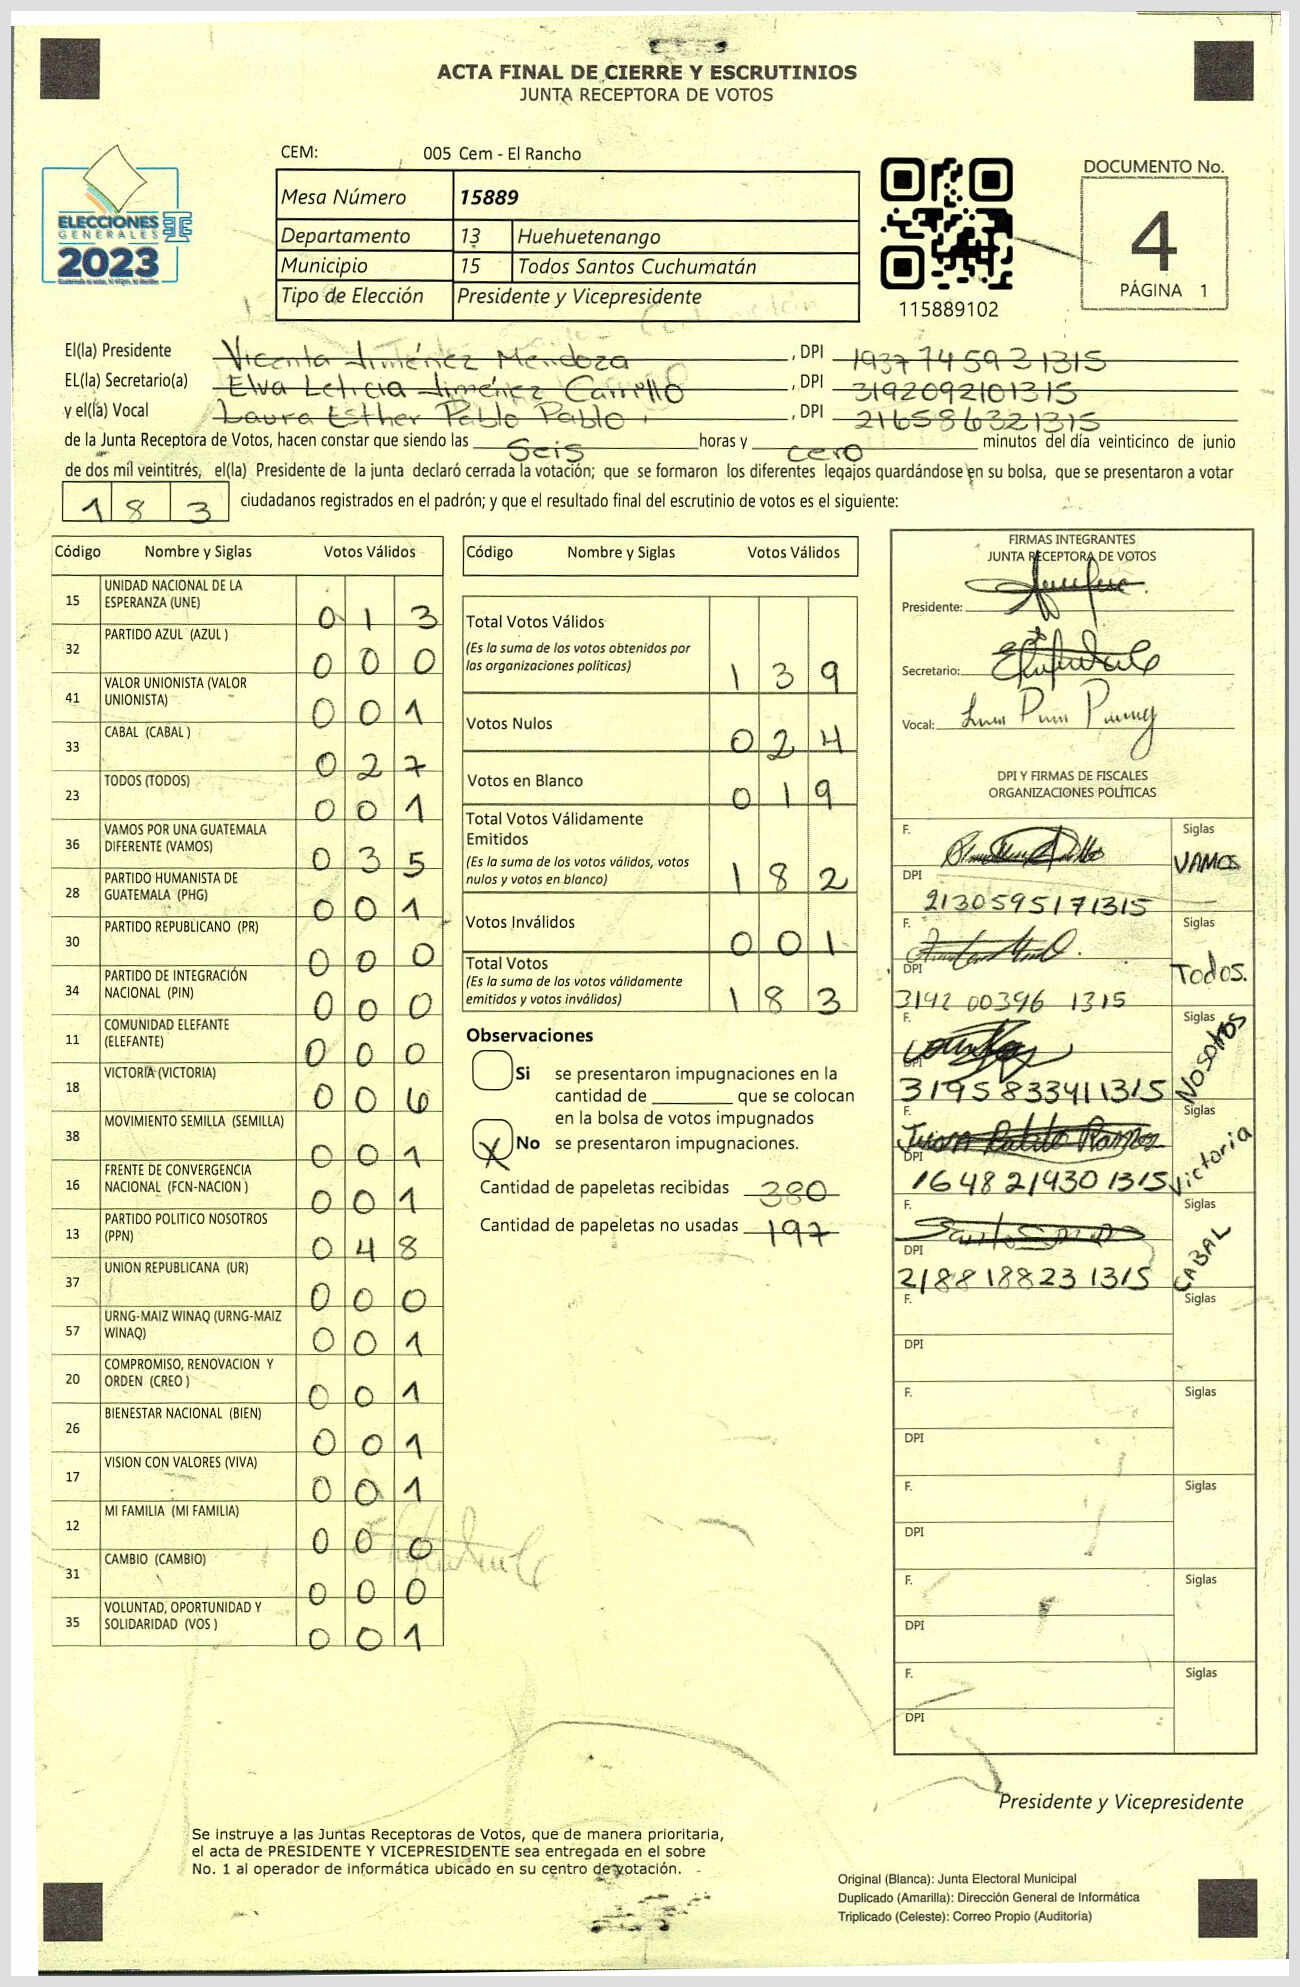 ACTA FINAL DE CIERRE Y ESCRUTINIOS
JUNTA RECEPTORA DE VOTOS
ELECCIONES
GENERALES
2023
CEM: 005 Cem - El Rancho
Mesa Número 15889
Departamento 13 Huehuetenango
Municipio 15 Todos Santos Cuchumatán
Tipo de Elección Presidente y Vicepresidente
115889102
DOCUMENTO No.
4
PÁGINA 1
El(la) Presidente Vicenta Jiménez Mendoza, DPI 1937745931315
EL(la) Secretario(a) Elva Leticia Jiménez Carrillo, DPI 3192092101315
y el(la) Vocal Laura Esther Pablo Pablo, DPI 216586321315
de la Junta Receptora de Votos, hacen constar que siendo las Seis horas y cero minutos del día veinticinco de junio
de dos mil veintitrés, el(la) Presidente de la junta declaró cerrada la votación; que se formaron los diferentes legajos guardándose en su bolsa, que se presentaron a votar
183 ciudadanos registrados en el padrón; y que el resultado final del escrutinio de votos es el siguiente:
Código Nombre y Siglas Votos Válidos
15 UNIDAD NACIONAL DE LA ESPERANZA (UNE) 013
32 PARTIDO AZUL (AZUL ) 000
41 VALOR UNIONISTA (VALOR UNIONISTA) 001
33 CABAL (CABAL ) 027
23 TODOS (TODOS) 001
36 VAMOS POR UNA GUATEMALA DIFERENTE (VAMOS) 035
28 PARTIDO HUMANISTA DE GUATEMALA (PHG) 001
30 PARTIDO REPUBLICANO (PR) 000
34 PARTIDO DE INTEGRACIÓN NACIONAL (PIN) 000
11 COMUNIDAD ELEFANTE (ELEFANTE) 000
18 VICTORIA (VICTORIA) 006
38 MOVIMIENTO SEMILLA (SEMILLA) 001
16 FRENTE DE CONVERGENCIA NACIONAL (FCN-NACION ) 001
13 PARTIDO POLITICO NOSOTROS (PPN) 048
37 UNION REPUBLICANA (UR) 000
57 URNG-MAIZ WINAQ (URNG-MAIZ WINAQ) 001
20 COMPROMISO, RENOVACION Y ORDEN (CREO ) 001
26 BIENESTAR NACIONAL (BIEN) 001
17 VISION CON VALORES (VIVA) 001
12 MI FAMILIA (MI FAMILIA) 000
31 CAMBIO (CAMBIO) 000
35 VOLUNTAD, OPORTUNIDAD Y SOLIDARIDAD (VOS ) 001
Código Nombre y Siglas Votos Válidos
Total Votos Válidos 139
(Es la suma de los votos obtenidos por
las organizaciones políticas)
Votos Nulos 024
Votos en Blanco 019
Total Votos Válidamente
Emitidos
(Es la suma de los votos válidos, votos
nulos y votos en blanco) 182
Votos Inválidos 001
Total Votos
(Es la suma de los votos válidamente
emitidos y votos inválidos) 183
Observaciones
Si se presentaron impugnaciones en la
cantidad de ________ que se colocan
en la bolsa de votos impugnados
X No se presentaron impugnaciones.
Cantidad de papeletas recibidas 380
Cantidad de papeletas no usadas 197
FIRMAS INTEGRANTES
JUNTA RECEPTORA DE VOTOS
Presidente:
Secretario:
Vocal:
DPI Y FIRMAS DE FISCALES
ORGANIZACIONES POLÍTICAS
F. Siglas VAMOS
DPI 2130595171315
F. Siglas Todos.
DPI 3192 00396 1315
F. Siglas Nosotros
DPI 3195833411315
F. Juan Pablo Ramos Siglas Victoria
DPI 1648214301315
F. Siglas CABAL
DPI 2188188231315
F. Siglas
DPI
F. Siglas
DPI
F. Siglas
DPI
F. Siglas
DPI
F. Siglas
DPI
Presidente y Vicepresidente
Se instruye a las Juntas Receptoras de Votos, que de manera prioritaria,
el acta de PRESIDENTE Y VICEPRESIDENTE sea entregada en el sobre
No. 1 al operador de informática ubicado en su centro de votación.
Original (Blanca): Junta Electoral Municipal
Duplicado (Amarilla): Dirección General de Informática
Triplicado (Celeste): Correo Propio (Auditoría)